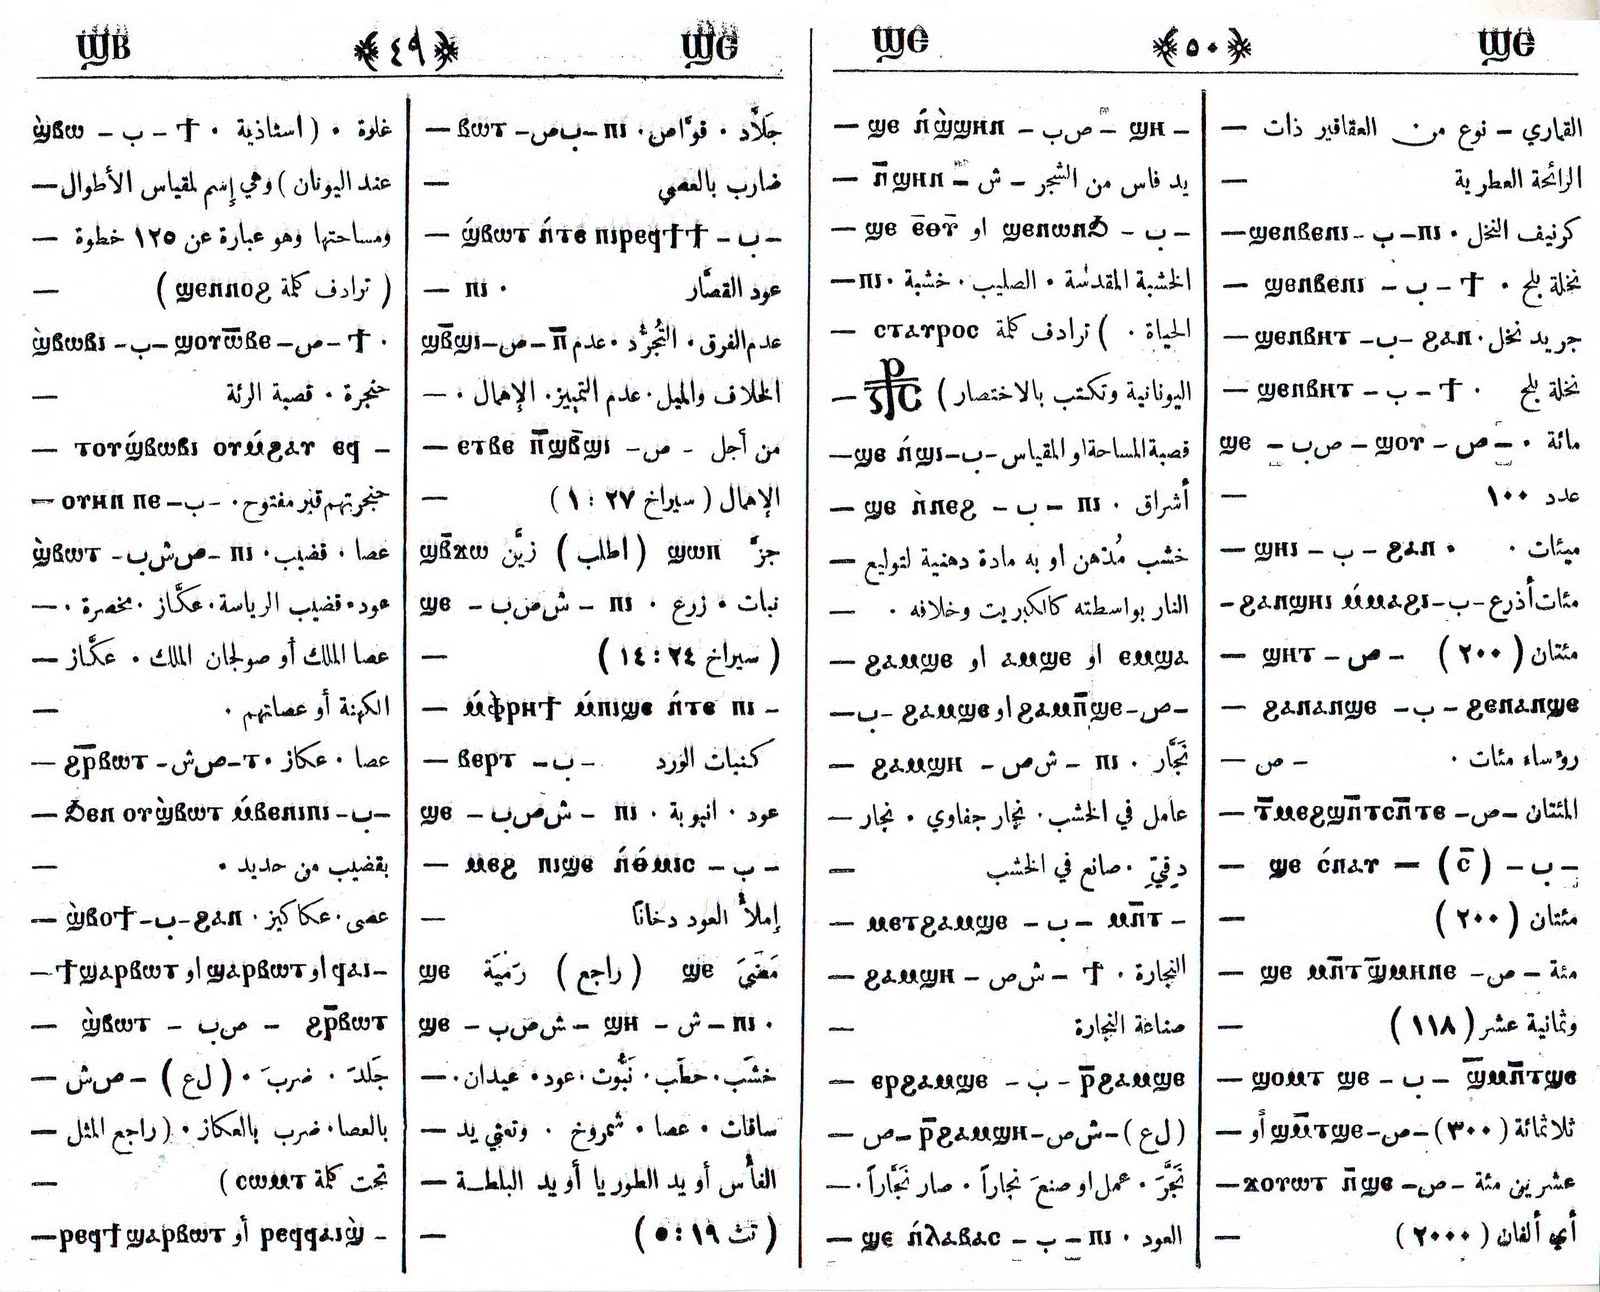 ϢⲂ ﴾٤٩﴿ Ϣⲉ
ϣ̀ⲃⲱ – ب – ϯ ٠ غلوة ٠ (اسثاذية
عند اليونان) وهي إسم لمقياس الأطوال —
ومساحتها وهو عبارة عن ١٢٥ خطوة —
(ترادف كلمة ϣⲉⲛⲛⲟϩ) —
ϣ̀ⲃⲱⲃⲓ – ب – ϣⲟⲩⲱ̅ⲃⲉ – ص – ϯ ٠
حنجرة ٠ قصبة الرئة —
— ⲧⲟⲩϣ̀ⲃⲱⲃⲓ ⲟⲩⲙ̀ϩⲁⲩ ⲉϥ –
— ⲟⲩⲏⲛ ⲡⲉ – ب – ٠ حنجرتهم قبر مفتوح
ϣ̀ⲃⲱⲧ – ص ش ب – ⲡⲓ ٠ عصا ٠ قضيب
عود ٠ قضيب الرياسة ٠ عكَّاز ٠ مخصرة ٠ —
عصا الملك أو صولجان الملك ٠ عكَّاز —
الكهنة أو عصاتهم ٠ —
— ϩⲣ̅ⲃⲱⲧ – ص ش – ⲧ ٠ عصا ٠ عكاز
— ϧⲉⲛ ⲟⲩϣ̀ⲃⲱⲧ ⲙ̀ⲃⲉⲛⲓⲡⲓ – ب –
بقضيب من حديد ٠ —
— ϣ̀ⲃⲟϯ – ب – ϩⲁⲛ ٠ عصى ٠ عكاكيز
— ϯϣⲁⲣⲃⲱⲧ او ϣⲁⲣⲃⲱⲧ او ϥⲁⲓ –
— ϣ̀ⲃⲱⲧ – ص ب – ϩⲣ̅ⲃⲱⲧ
جَلَدَ ٠ ضربَ ٠ (ل ع) – ص ش —
بالعصا ٠ ضرب بالعكاز ٠ (راجع المثل —
تحت كلمة ⲥⲱⲙⲧ) —
— ⲣⲉϥϯϣⲁⲣⲃⲱⲧ أو ⲣⲉϥϥⲁⲓϣ̀ –
— ⲃⲱⲧ – ب ص – ⲡⲓ ٠ جَلَّاد ٠ قوَّاص
ضارب بالعصي —
— ϣ̀ⲃⲱⲧ ⲛ̀ⲧⲉ ⲡⲓⲣⲉϥϯϯ – ب –
— ⲡⲓ ٠ عود القصَّار
ϣⲃ̅ϣⲓ – ص – ⲡ̅ عدم الفرق ٠ التُجرُّد ٠ عدم
الخلاف والميل ٠ عدم التمييز ٠ الإهمال ٠ —
— ⲉⲧⲃⲉ ⲡ̅ϣⲃ̅ϣⲓ – ص – من أجل
الإهمال (سيراخ ٢٧ : ١) —
ϣⲃ̅ϫⲱ زيَّن (اطلب) ϣⲱⲡ جزَّ
ϣⲉ – ش ص ب – ⲡⲓ ٠ نبات ٠ زرع
(سيراخ ٢٤ : ١٤) —
— ⲙ̀ⲫⲣⲏϯ ⲙ̀ⲡⲓϣⲉ ⲛ̀ⲧⲉ ⲡⲓ –
— ⲃⲉⲣⲧ – ب – كنبات الورد
ϣⲉ – ش ص ب – ⲡⲓ ٠ عود ٠ انبوبة
— ⲙⲉϩ ⲡⲓϣⲉ ⲛ̀ⲑⲙⲓⲥ – ب –
إملأ العود دخانًا —
ϣⲉ رَمْيَة (راجع) ϣⲉ مَضَىَ
ϣⲉ – ش ص ب – ϣⲏ – ش – ⲡⲓ ٠
خشَب ٠ حطَب ٠ نَبُّوت ٠ عود ٠ عيدان ٠ —
ساقات ٠ عصا ٠ شمروخ ٠ وتعني يد —
الفأس أو يد الطوريا أو يد البلطة —
(تث ١٩ : ٥) —
Ϣⲉ ﴾٥٠﴿ Ϣⲉ
— ϣⲉ ⲛ̀ϣ̀ϣⲏⲛ – ص ب – ϣⲏ –
— ⲛ̅ϣⲏⲛ – ش – يد فاس من الشجر
— ϣⲉ ⲉ̅ⲑⲩ̅ او ϣⲉⲛⲱⲛϧ – ب –
— ⲡⲓ ٠ الخشبة المقدسة ٠ الصليب ٠ خشبة
الحياة ٠ (ترادف كلمة ⲥⲧⲁⲩⲣⲟⲥ —
اليونانية وتكتب بالاختصار) —
— ϣⲉ ⲛ̀ϣⲓ – ب – قصبة المساحة او المقياس
— ϣⲉ ⲛ̀ⲛⲉϩ – ب – ⲡⲓ ٠ أشراق
خشب مُدْهن او به مادة دهنية لتوليع —
النار بواسطته كالكبريت وخلافه ٠ —
— ϩⲁⲙϣⲉ او ⲁⲙϣⲉ او ⲉⲙϣⲁ
— ب – ϩⲁⲙϣⲉ او ϩⲁⲙⲡ̅ϣⲉ – ص –
— ϩⲁⲙϣⲏ – ش ص – ⲡⲓ ٠ نجَّار
عامل في الخشب ٠ نجار جفاوي ٠ نجار —
دِقيِّ ٠ صانع في الخشب —
— ⲙⲉⲧϩⲁⲙϣⲉ – ب – ⲙⲛ̅ⲧ –
— ϩⲁⲙϣⲏ – ش ص – ϯ ٠ النجارة
صناعة النجارة —
— ⲉⲣϩⲁⲙϣⲉ – ب – ⲣ̅ϩⲁⲙϣⲉ
— ص – ⲣ̅ϩⲁⲙϣⲏ – ش ص – (ل ع)
نَجَّرَ ٠ عمل او صنعَ نجاراً ٠ صار نَجَّاراً ٠ —
— ϣⲉ ⲛ̀ⲗⲁⲃⲁⲥ – ب – ⲡⲓ ٠ العود
القماري – نوع من العقاقير ذات —
الرائحة العطرية —
— ϣⲉⲛⲃⲉⲛⲓ – ب – ⲡⲓ ٠ كرنيف النخل
— ϣⲉⲛⲃⲉⲛⲓ – ب – ϯ ٠ نخلة بلح
— ϣⲉⲛⲃⲏⲧ – ب – ϩⲁⲛ ٠ جريد نخل
— ϣⲉⲛⲃⲏⲧ – ب – ϯ ٠ نخلة بلح
ϣⲉ – ص ب – ϣⲟⲩ – ص – ٠ مائة
عدد ١٠٠ —
— ϣⲏⲓ – ب – ϩⲁⲛ ٠ ميئات ٠
– ϩⲁⲛϣⲏⲓ ⲙ̀ⲙⲁϩⲓ – ب – مئات أذرع
— ϣⲏⲧ – ص – مئتان (٢٠٠)
— ϩⲁⲛⲁⲛϣⲉ – ب – ϩⲉⲛⲁⲛϣⲉ
— ص – رؤساء مئات ٠
— ⲧ̅ⲙⲉϩϣⲛ̅ⲧⲥⲛ̅ⲧⲉ – ص – المئتان
— ϣⲉ ⲥ̀ⲛⲁⲩ — (ⲥ̅) – ب –
مئتان (٢٠٠) —
— ϣⲉ ⲙⲛ̅ⲧϣ̅ⲙⲏⲛⲉ – ص – مئة
وثمانية عشر (١١٨) —
— ϣⲟⲙⲧ ϣⲉ – ب – ϣ̅ⲙⲛ̅ⲧϣⲉ
— أو ϣⲙ̅ⲧϣⲉ – ص – ثلاثمائة (٣٠٠)
— ϫⲟⲩⲱⲧ ⲛ̅ϣⲉ – ص – عشرين مئة
أي ألفان (٢٠٠٠) —